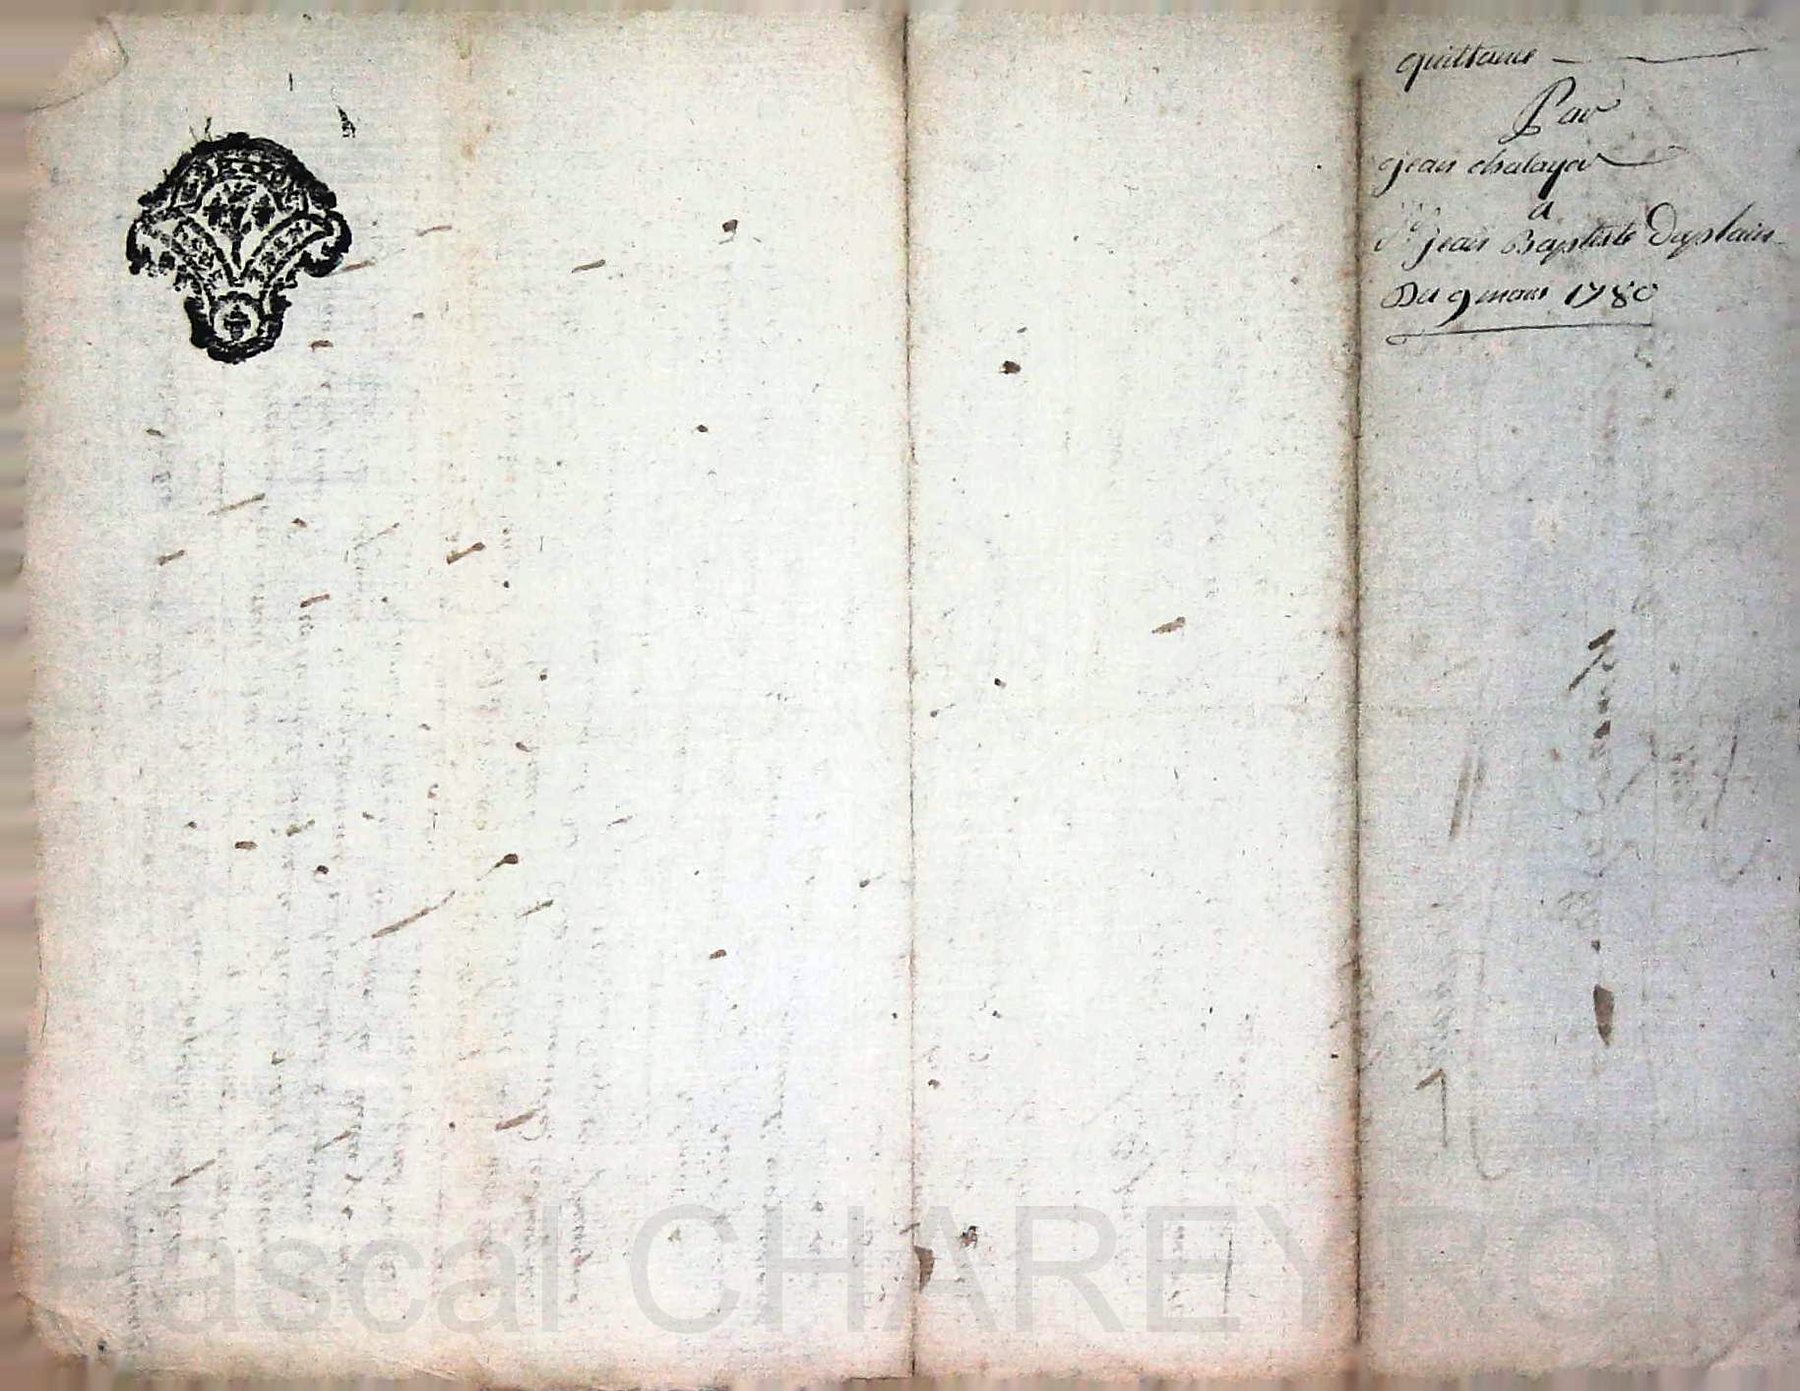 quittance
Par
jean chalayer
a
Sr jean Baptiste Duplain
Du 9 mars 1780
Pascal CHAREYRON